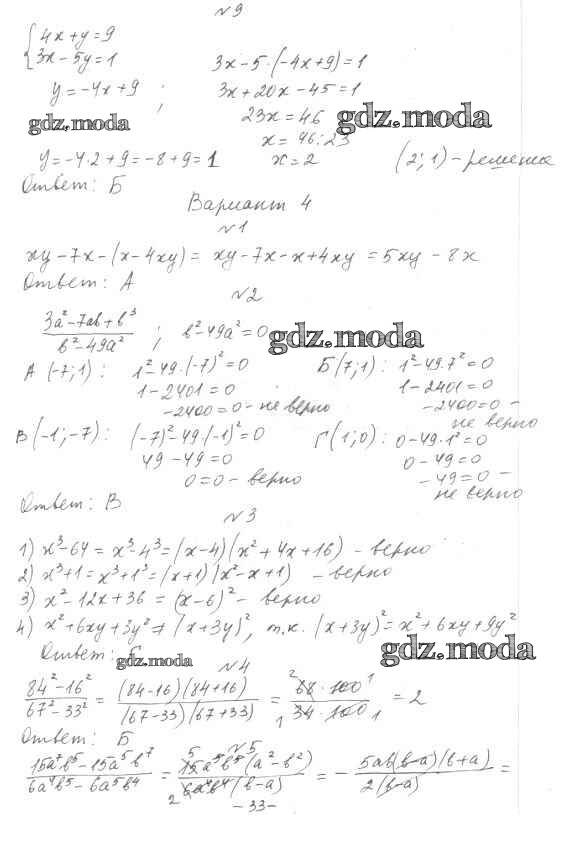 №9
{4x+y=9
3x-5y=1
3x-5·(-4x+9)=1
y=-4x+9 ;
3x+20x-45=1
23x=46
gdz.moda
gdz.moda
x=46:23
y=-4·2+9=-8+9=1
x=2
(2;1)-решение
Ответ: Б
Вариант 4
№1
xy-7x-(x-4xy)=xy-7x-x+4xy=5xy-8x
Ответ: А
№2
(3a²-7ab+b³)/(b²-49a²) ; b²-49a²=0
gdz.moda
А (-7;1): 1²-49·(-7)²=0
1-2401=0
-2400=0-не верно
Б(7;1): 1²-49·7²=0
1-2401=0
-2400=0-
не верно
В(-1;-7): (-7)²-49·(-1)²=0
49-49=0
0=0-верно
Г(1;0): 0-49·1²=0
0-49=0
-49=0-
не верно
Ответ: В
№3
1) x³-64=x³-4³=(x-4)(x²+4x+16)-верно
2) x³+1=x³+1³=(x+1)(x²-x+1)-верно
3) x²-12x+36=(x-6)²-верно
4) x²+6xy+3y²≠(x+3y)², т.к. (x+3y)²=x²+6xy+9y²
gdz.moda
Ответ:
gdz.moda
№4
(84²-16²)/(67²-33²)=((84-16)(84+16))/((67-33)(67+33))=(68·100)/(34·100)=2
Ответ: Б
№5
(15a⁷b⁵-15a⁵b⁷)/(6a⁴b⁵-6a⁵b⁴)=(15a⁵b⁵(a²-b²))/(6a⁴b⁴(b-a))=-(5ab(b-a)(b+a))/(2(b-a))=
-33-